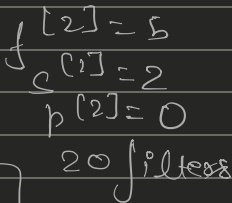 f^[2] = 5
s^[2] = 2
p^[2] = 0
20 filters